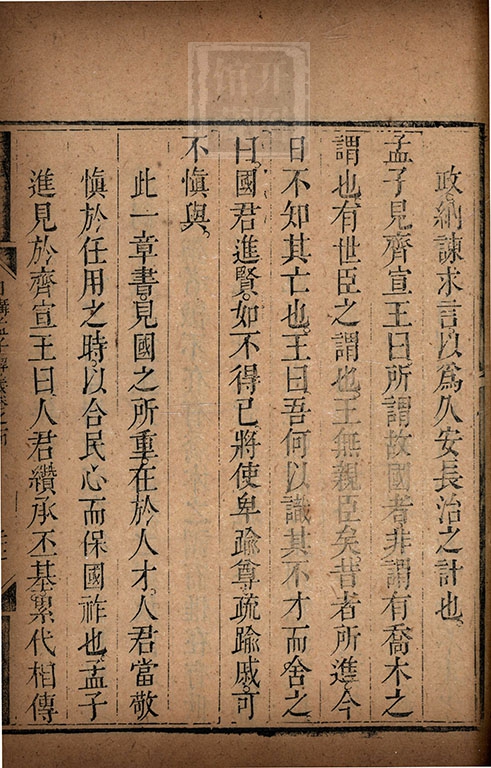 政納諫求言以為久安長治之計也
孟子見齊宣王曰所謂故國者非謂有喬木之
謂也有世臣之謂也王無親臣矣昔者所進今
日不知其亡也王曰吾何以識其不才而舍之
曰國君進賢如不得已將使卑踰尊疏踰戚可
不慎與
此一章書見國之所重在於人才人君當敬
慎於任用之時以合民心而保國祚也孟子
進見於齊宣王曰人君纘承丕基累代相傳